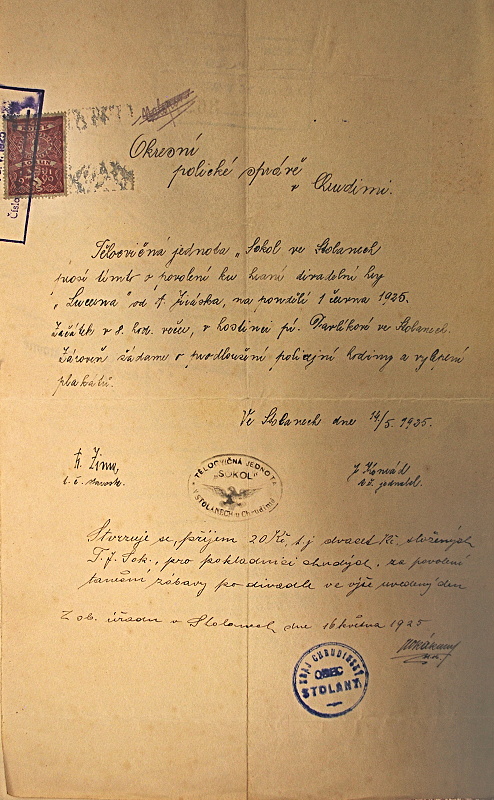 Okresní
politické správě
v Chrudimi.
Tělocvičná jednota „Sokol" ve Stolanech
prosí tímto o povolení ku hraní divadelní hry
„Lucerna" od A. Jiráska, na pondělí 1 června 1925.
Začátek v 8. hod. več., v hostinci pí. Pavlíkové ve Stolanech.
Zároveň žádáme o prodloužení policejní hodiny a vylepení
plakátů.
Ve Stolanech dne 14/5. 1925.
t. č. starosta.
t. č. jednatel.
TĚLOCVIČNÁ JEDNOTA
„SOKOL"
V STOLANECH u Chrudimě
Stvrzuje se, příjem 20 Kč, t.j. dvacet Kč, složených
T. J. Sok., pro pokladnici chudých, za povolení
taneční zábavy po divadle ve výše uvedený den
Z ob. úřadu v Stolanech dne 16 května 1925
KRAJ CHRUDIMSKÝ
OBEC
STOLANY